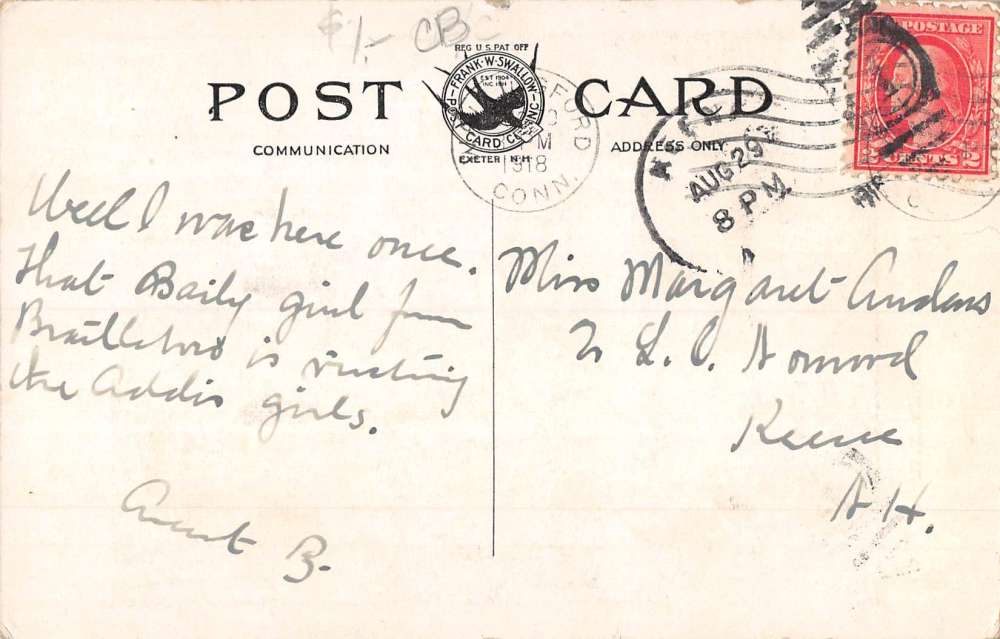 $1- CBC
REG U.S. PAT. OFF
POST CARD
FRANK·W·SWALLOW
EST 1904
INC 1911
POST CARD CO INC
EXETER N·H
COMMUNICATION
ADDRESS ONLY
FORD
M
1918
CONN.
AUG 29
8 PM
POSTAGE
2 CENTS 2
Well I was here once.
That Baily girl from
Brattleboro is visiting
the Addis girls.
Aunt B.
Miss Margaret
L. C.
Keene
N H.